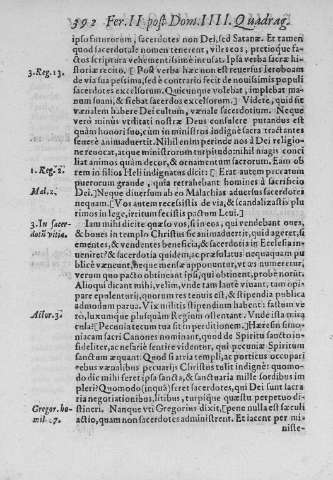 392 Fer. II post Dom. IIII. Quadrag.
ipso futurorum, sacerdotes non Dei, sed Satanæ. Et tamen
quod sacerdotale nomen tenerent, vilescos, pretioque fa-
ctos scriptura vehementissime incusat. Ipsa verba sacræ hi-
3. Reg. 13. storiæ recito. [Post verba hæc non est reuersus Ieroboam
de via sua pessima, sed è contrario fecit de nouissimis populi
sacerdotes excelsorum. Quicunque volebat, implebat ma-
num suam, & fiebat sacerdos excelsorum.] Videte, quid sit
venalem habere Dei cultum, venale sacerdotium. Neque
verò minus vestitati nostræ Deus consulere putandus est
quàm honori suo, cum in ministros indignè sacra tractantes
seuerè animaduertit. Nihil enim perinde nos à Dei religio-
ne reuocat, atque ministrorum turpitudo nihil magis conci-
liat animos quàm decor, & ornamentum sacrorum. Eam ob
1. Reg. 2. rem in filios Heli indignatus dicit: [Erat autem peccatum
puerorum grande, quia retrahebant homines à sacrificio
Mal. 2. Dei.] Neque diuersum ab eo Malachias aduersus sacerdotes
nequam. [Vos autem recessistis de via, & scandalizastis plu-
rimos in lege, irritum fecistis pactum Leui.]
3. In sacer- Iam mihi dicite quæso vos, si in eos, qui vendebant oues,
dotũ vitia. & bones emebant, & Christus sic animaduertit, quid ageret, si
ementes, & vendentes beneficia, & sacerdotia in Ecclesia in-
ueniret? & sacerdotia quidem, ac præfulatus nequaquam pu-
blicè væneunt, neque mensæ apponuntur, vt æs numeretur,
verum quo pacto obtineant ipsi, qui obtinent, probè norũt.
Alioqui dicant mihi, velim, vnde tam lautè viuant, tam opi-
parè epulentur, quorum res tenuis est, & stipendia publica
admodum parua. Vix militis stipendium habent: fastum ve
Actor. 3. rò, luxumque plusquàm Regium ostentant. Vnde ista mise
enla? [Pecunia tecum tua sit in perditionem.] Hæresin simo-
niacam sacri Canones nominant, quod de Spiritu sancto in-
fideliter, ac nefariè sentire videantur, qui pecuniæ Spiritum
sanctum æquant. Quod si atria templi, ac porticus occupari
ebus væalibus pecuarijs Christus tulit indignè: quomo-
do dic mihi feret ipsa sancta, & sanctuaria mille sordibus im-
pleri? Quomodo (inquã) feret sacerdotes, qui Dei sunt sacra
ria negotiationibus, litibus, turpique quæstu perpetuo di-
Gregor. ho- stineri. Nanque vti Gregorius dixit, [pene nulla est sæculi
mil. 17. actio, quam non sacerdotes administrent. Et iacent per mi
niste-